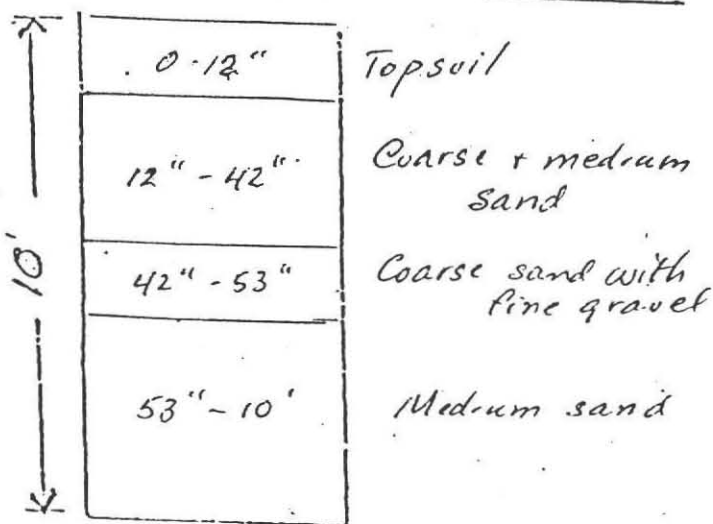 0-12" Topsoil
12" - 42" Coarse + medium
sand
10'
42" - 53" Coarse sand with
fine gravel
53" - 10' Medium sand